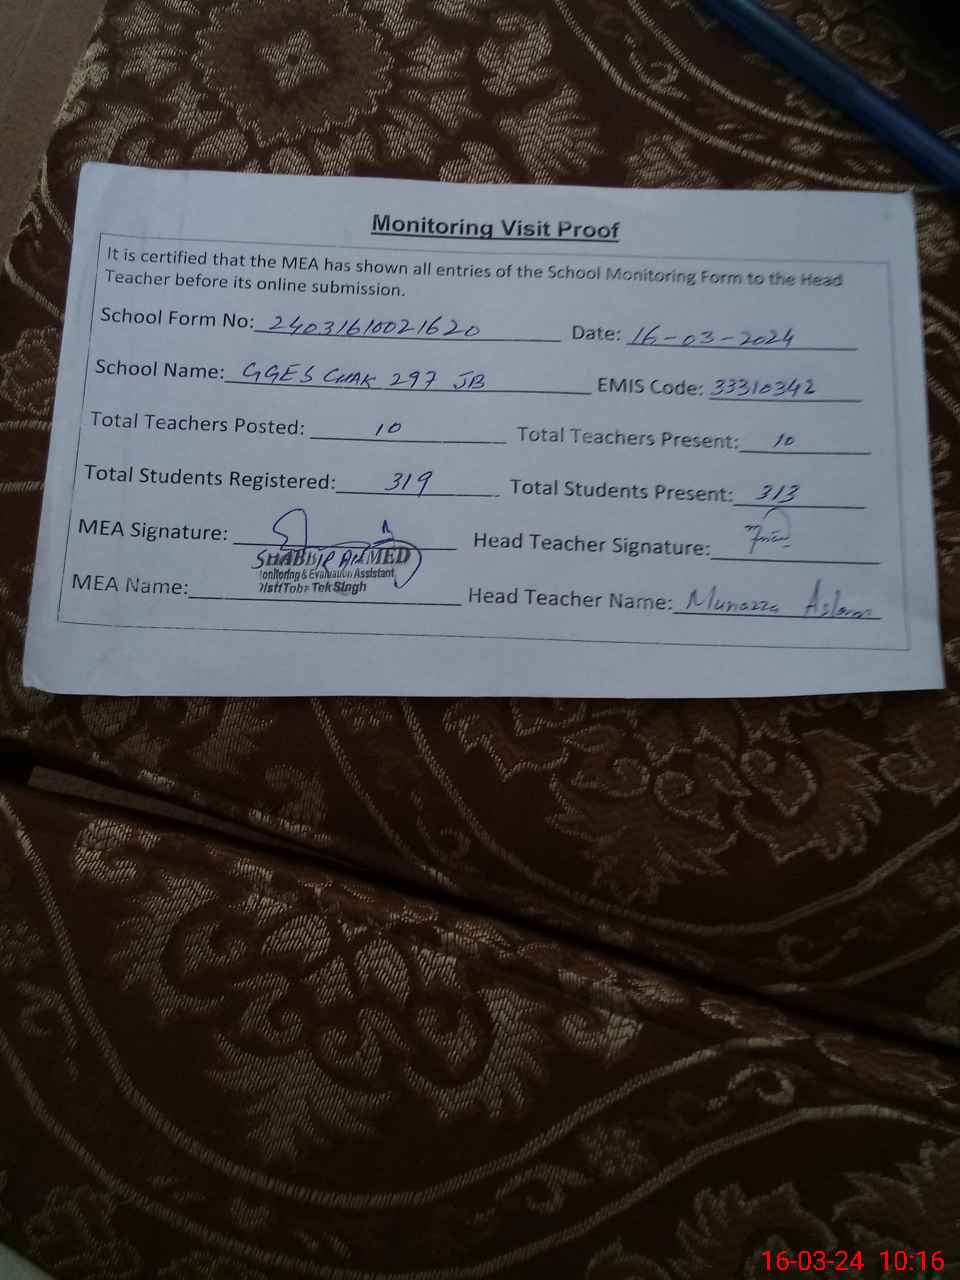 Monitoring Visit Proof
It is certified that the MEA has shown all entries of the School Monitoring Form to the Head
Teacher before its online submission.
School Form No: 24031610021620 Date: 16-03-2024
School Name: GGES CHAK 297 JB EMIS Code: 33310342
Total Teachers Posted: 10 Total Teachers Present: 10
Total Students Registered: 319 Total Students Present: 313
MEA Signature: Head Teacher Signature:
SHABBIR AHMED
onitoring & Evaluation Assistant
Tek Singh
MEA Name: Head Teacher Name: Munazza Aslam
16-03-24 10:16